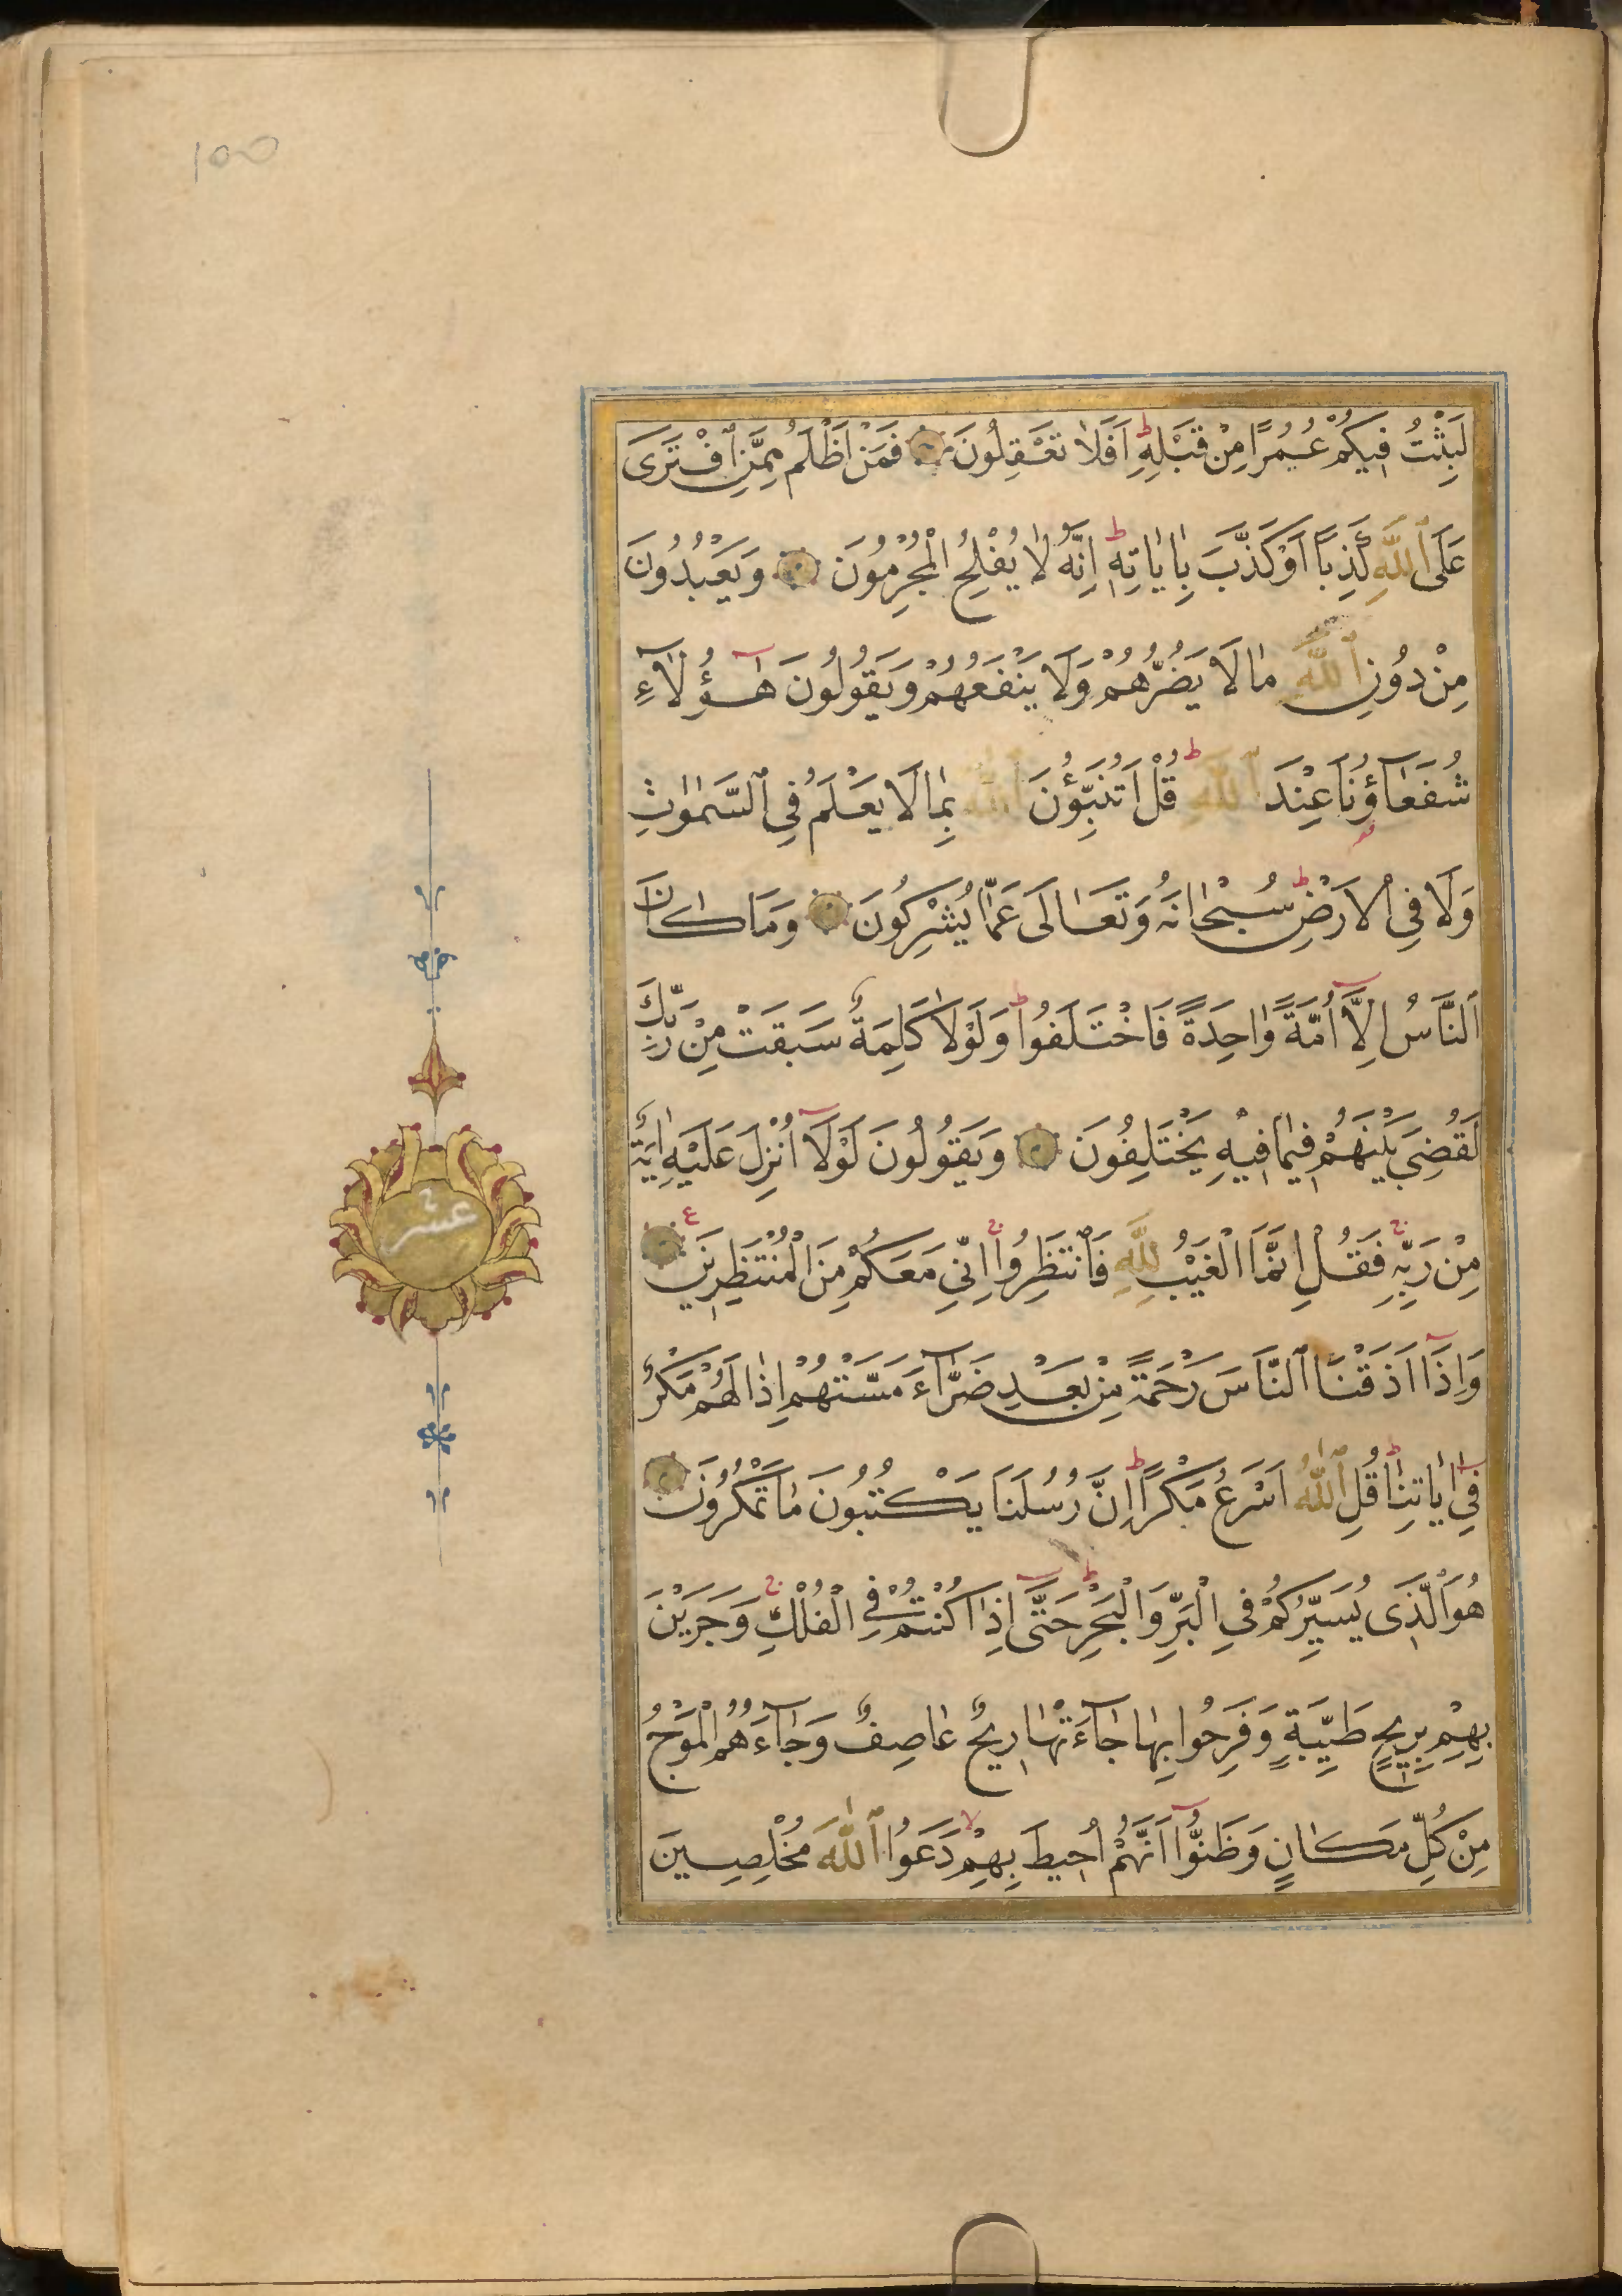 100
لَبِثْتُ فِيكُمْ عُمُرًا مِنْ قَبْلِهِ ط اَفَلَا تَعْقِلُونَ فَمَنْ اَظْلَمُ مِمَّنِ ٱفْتَرَى
عَلَى ٱللَّهِ كَذِبًا اَوْ كَذَّبَ بِاٰيَاتِهِ ط اِنَّهُ لَا يُفْلِحُ الْمُجْرِمُونَ وَيَعْبُدُونَ
مِنْ دُونِ ٱللَّهِ مَا لَا يَضُرُّهُمْ وَلَا يَنْفَعُهُمْ وَيَقُولُونَ هٰٓؤُلَاءِ
شُفَعَآؤُنَا عِنْدَ ٱللَّهِ ط قُلْ اَتُنَبِّؤُنَ ٱللَّهَ بِمَا لَا يَعْلَمُ فِى ٱلسَّمٰوَاتِ
وَلَا فِى الْاَرْضِ ط سُبْحَانَهُ وَتَعَالَى عَمَّا يُشْرِكُونَ وَمَا كَانَ
ٱلنَّاسُ اِلَّآ اُمَّةً وَاحِدَةً فَاخْتَلَفُوا ط وَلَوْلَا كَلِمَةٌ سَبَقَتْ مِنْ رَبِّكَ
لَقُضِىَ بَيْنَهُمْ فِيمَا فِيهِ يَخْتَلِفُونَ وَيَقُولُونَ لَوْلَآ اُنْزِلَ عَلَيْهِ اٰيَةٌ
مِنْ رَبِّهِ ج فَقُلْ اِنَّمَا الْغَيْبُ لِلَّهِ فَانْتَظِرُوا ج اِنِّى مَعَكُمْ مِنَ الْمُنْتَظِرِينَ ع
عشر
وَاِذَآ اَذَقْنَا ٱلنَّاسَ رَحْمَةً مِنْ بَعْدِ ضَرَّآءَ مَسَّتْهُمْ اِذَا لَهُمْ مَكْرٌ
فِىٓ اٰيَاتِنَا ط قُلِ ٱللَّهُ اَسْرَعُ مَكْرًا ط اِنَّ رُسُلَنَا يَكْتُبُونَ مَا تَمْكُرُونَ
هُوَ الَّذِى يُسَيِّرُكُمْ فِى الْبَرِّ وَالْبَحْرِ ط حَتَّىٓ اِذَا كُنْتُمْ فِى الْفُلْكِ ج وَجَرَيْنَ
بِهِمْ بِرِيحٍ طَيِّبَةٍ وَفَرِحُوا بِهَا جَآءَتْهَا رِيحٌ عَاصِفٌ وَجَآءَهُمُ الْمَوْجُ
مِنْ كُلِّ مَكَانٍ وَظَنُّوٓا اَنَّهُمْ اُحِيطَ بِهِمْ لا دَعَوُا ٱللَّهَ مُخْلِصِينَ